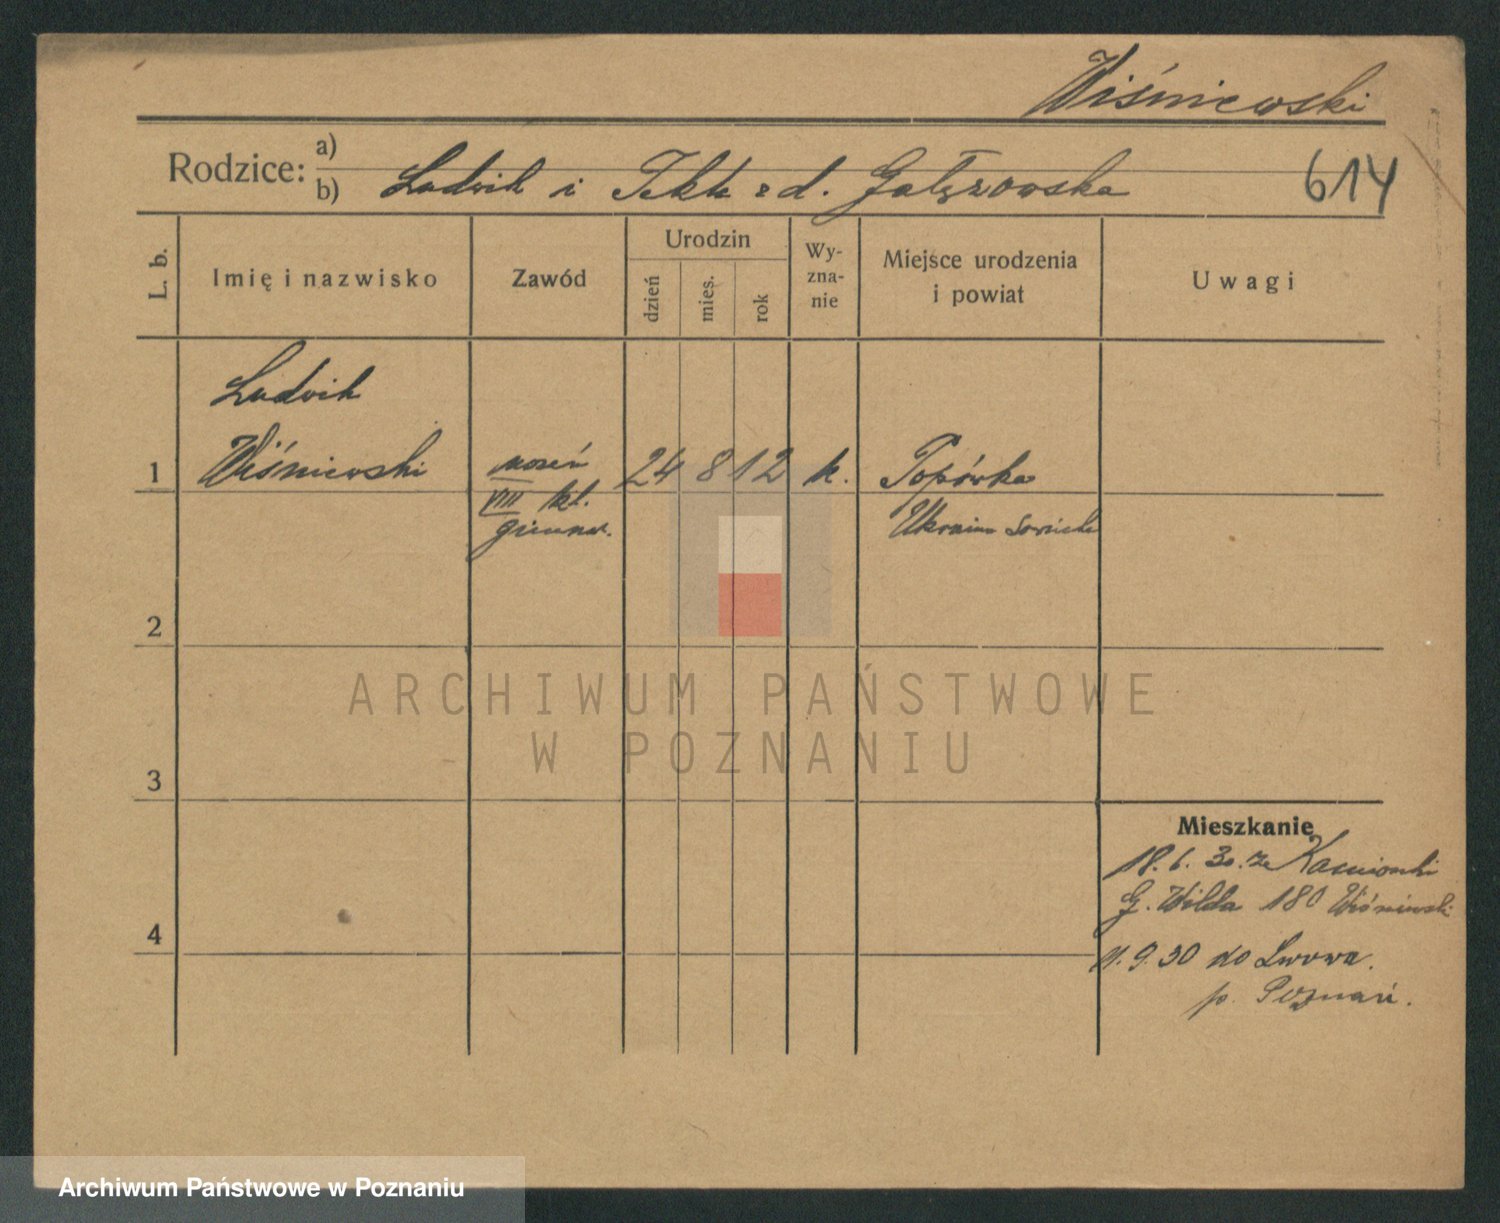 Wiśniewski
Rodzice: a)
b) Ludwik i Tekla z d. Gałęzowska
614
L. b.
Imię i nazwisko
Zawód
Urodzin
dzień
mies.
rok
Wy-
zna-
nie
Miejsce urodzenia
i powiat
Uwagi
Ludwik
1 Wiśniewski uczeń 24 8 12 k. Topórka
VIII kl. Ukraina Sowiecka
gimnaz.
2
ARCHIWUM PAŃSTWOWE
W POZNANIU
3
Mieszkanie
18.6.30. ze Kamionki
G. Wilda 180 Wiśniewski
4
11.9.30 do Lwowa.
p. Poznań.
Archiwum Państwowe w Poznaniu